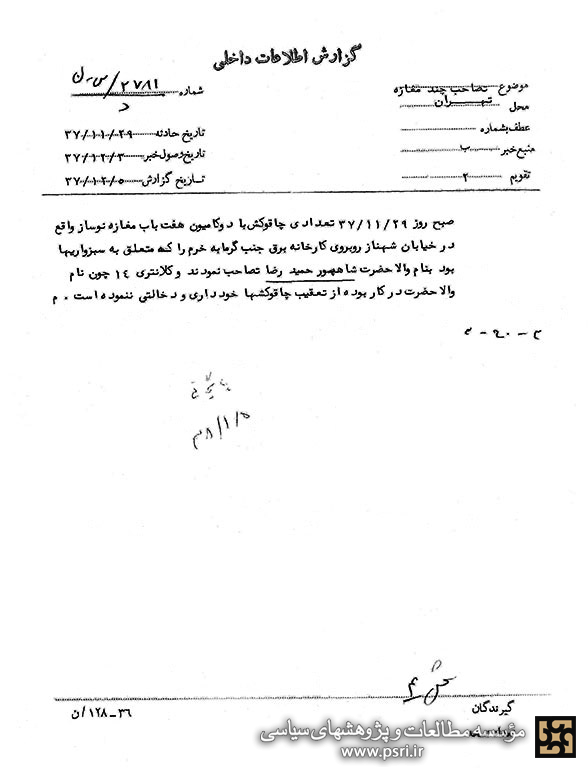 گزارش اطلاعات داخلی
شماره ۲۷۸۱/س-ن
د
موضوع تصاحب چند مغازه
محل تهران
عطف بشماره
منبع خبر ب
تقویم ۲
تاریخ حادثه ۳۷/۱۱/۲۹
تاریخ وصول خبر ۳۷/۱۲/۳
تاریخ گزارش ۳۷/۱۲/۵
صبح روز ۳۷/۱۱/۲۹ تعدادی چاقوکش با دوکامیون هفت باب مغازه نوساز واقع
در خیابان شهناز روبروی کارخانه برق جنب گرمابه خرم را که متعلق به سبزواریها
بود بنام والا حضرت شاهپور حمید رضا تصاحب نمودند و کلانتری ۱۴ چون نام
والا حضرت در کار بوده از تعقیب چاقوکشها خودداری و دخالتی ننموده است ۰ م
۳۸/۱/۵
گیرندگان
۳۶-۱۲۸/ن
مؤسسه مطالعات و پژوهشهای سیاسی
www.psri.ir